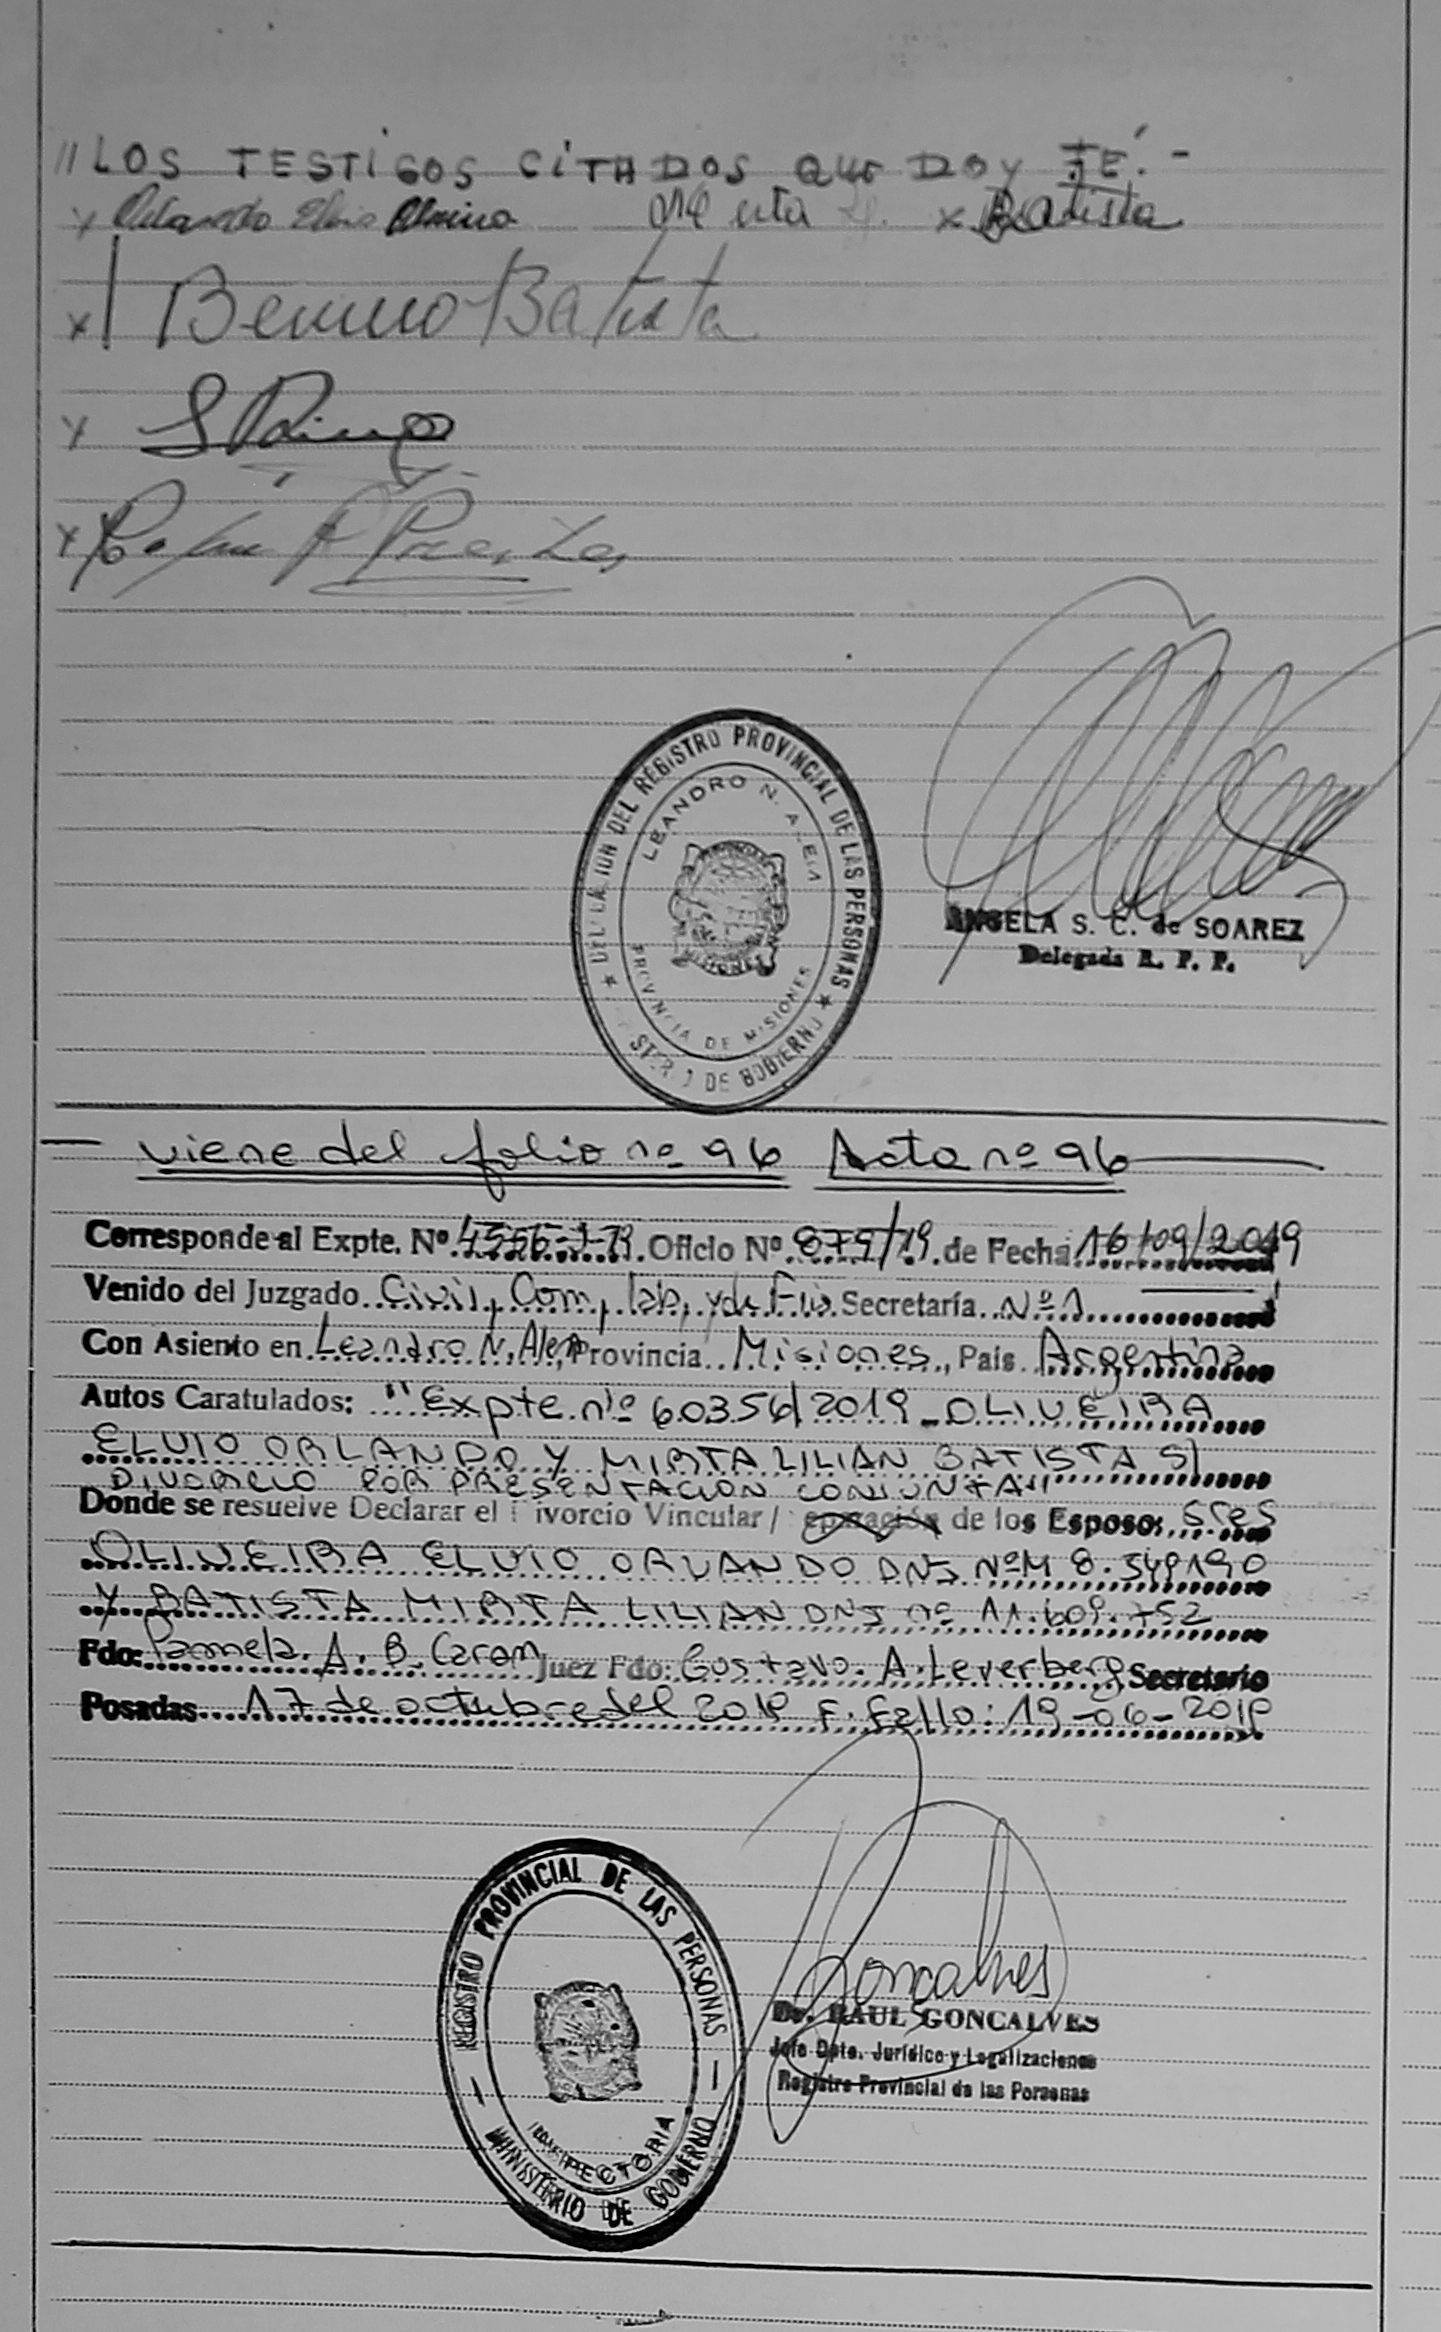 // LOS TESTIGOS CITADOS QUE DOY FE.-
x Orlando Elvio x Batista
x Benino Batista
x
x
DEL REGISTRO PROVINCIAL DE LAS PERSONAS
LEANDRO N. ALEM
MISIONES
PROVINCIA DE MISIONES
DE GOBIERNO
ANGELA S. C. de SOAREZ
Delegada R. P. P.
— viene del folio nº 96 Acta nº 96 —
Corresponde al Expte. Nº 4556-J-19. Oficio Nº 879/19. de Fecha 16/09/2019
Venido del Juzgado Civil, Com, lab, y de Fia. Secretaría Nº 1
Con Asiento en Leandro N. Alem, Provincia Misiones, País Argentina
Autos Caratulados: "Expte. nº 60356/2019 - OLIVEIRA
ELVIO ORLANDO Y MIRTA LILIAN BATISTA S/
DIVORCIO POR PRESENTACION CONJUNTA"
Donde se resuelve Declarar el Divorcio Vincular / Separación de los Esposos Sres
OLIVEIRA ELVIO ORLANDO DNI Nº M 8.549190
Y BATISTA MIRTA LILIAN DNI nº 11.609.752
Fdo: Pamela. A. B. Caram Juez Fdo: Gustavo. A. Leverberg Secretario
Posadas 17 de octubre del 2019 F. Fallo: 19-06-2019
REGISTRO PROVINCIAL DE LAS PERSONAS
INSPECTORIA
MINISTERIO DE GOBIERNO
Goncalves
Dr. RAUL GONCALVES
Jefe Dpto. Jurídico y Legalizaciones
Registro Provincial de las Personas